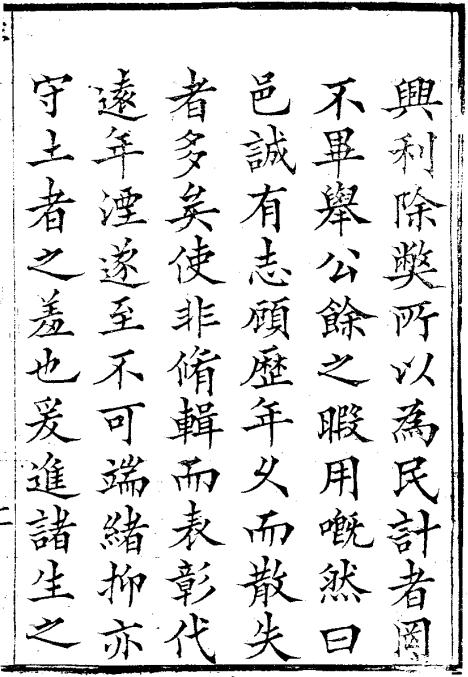 興利除弊所以為民計者罔
不畢舉公餘之暇用嘅然曰
邑誠有志顧歷年久而散失
者多矣使非脩輯而表彰代
遠年湮遂至不可端緒抑亦
守土者之羞也爰進諸生之